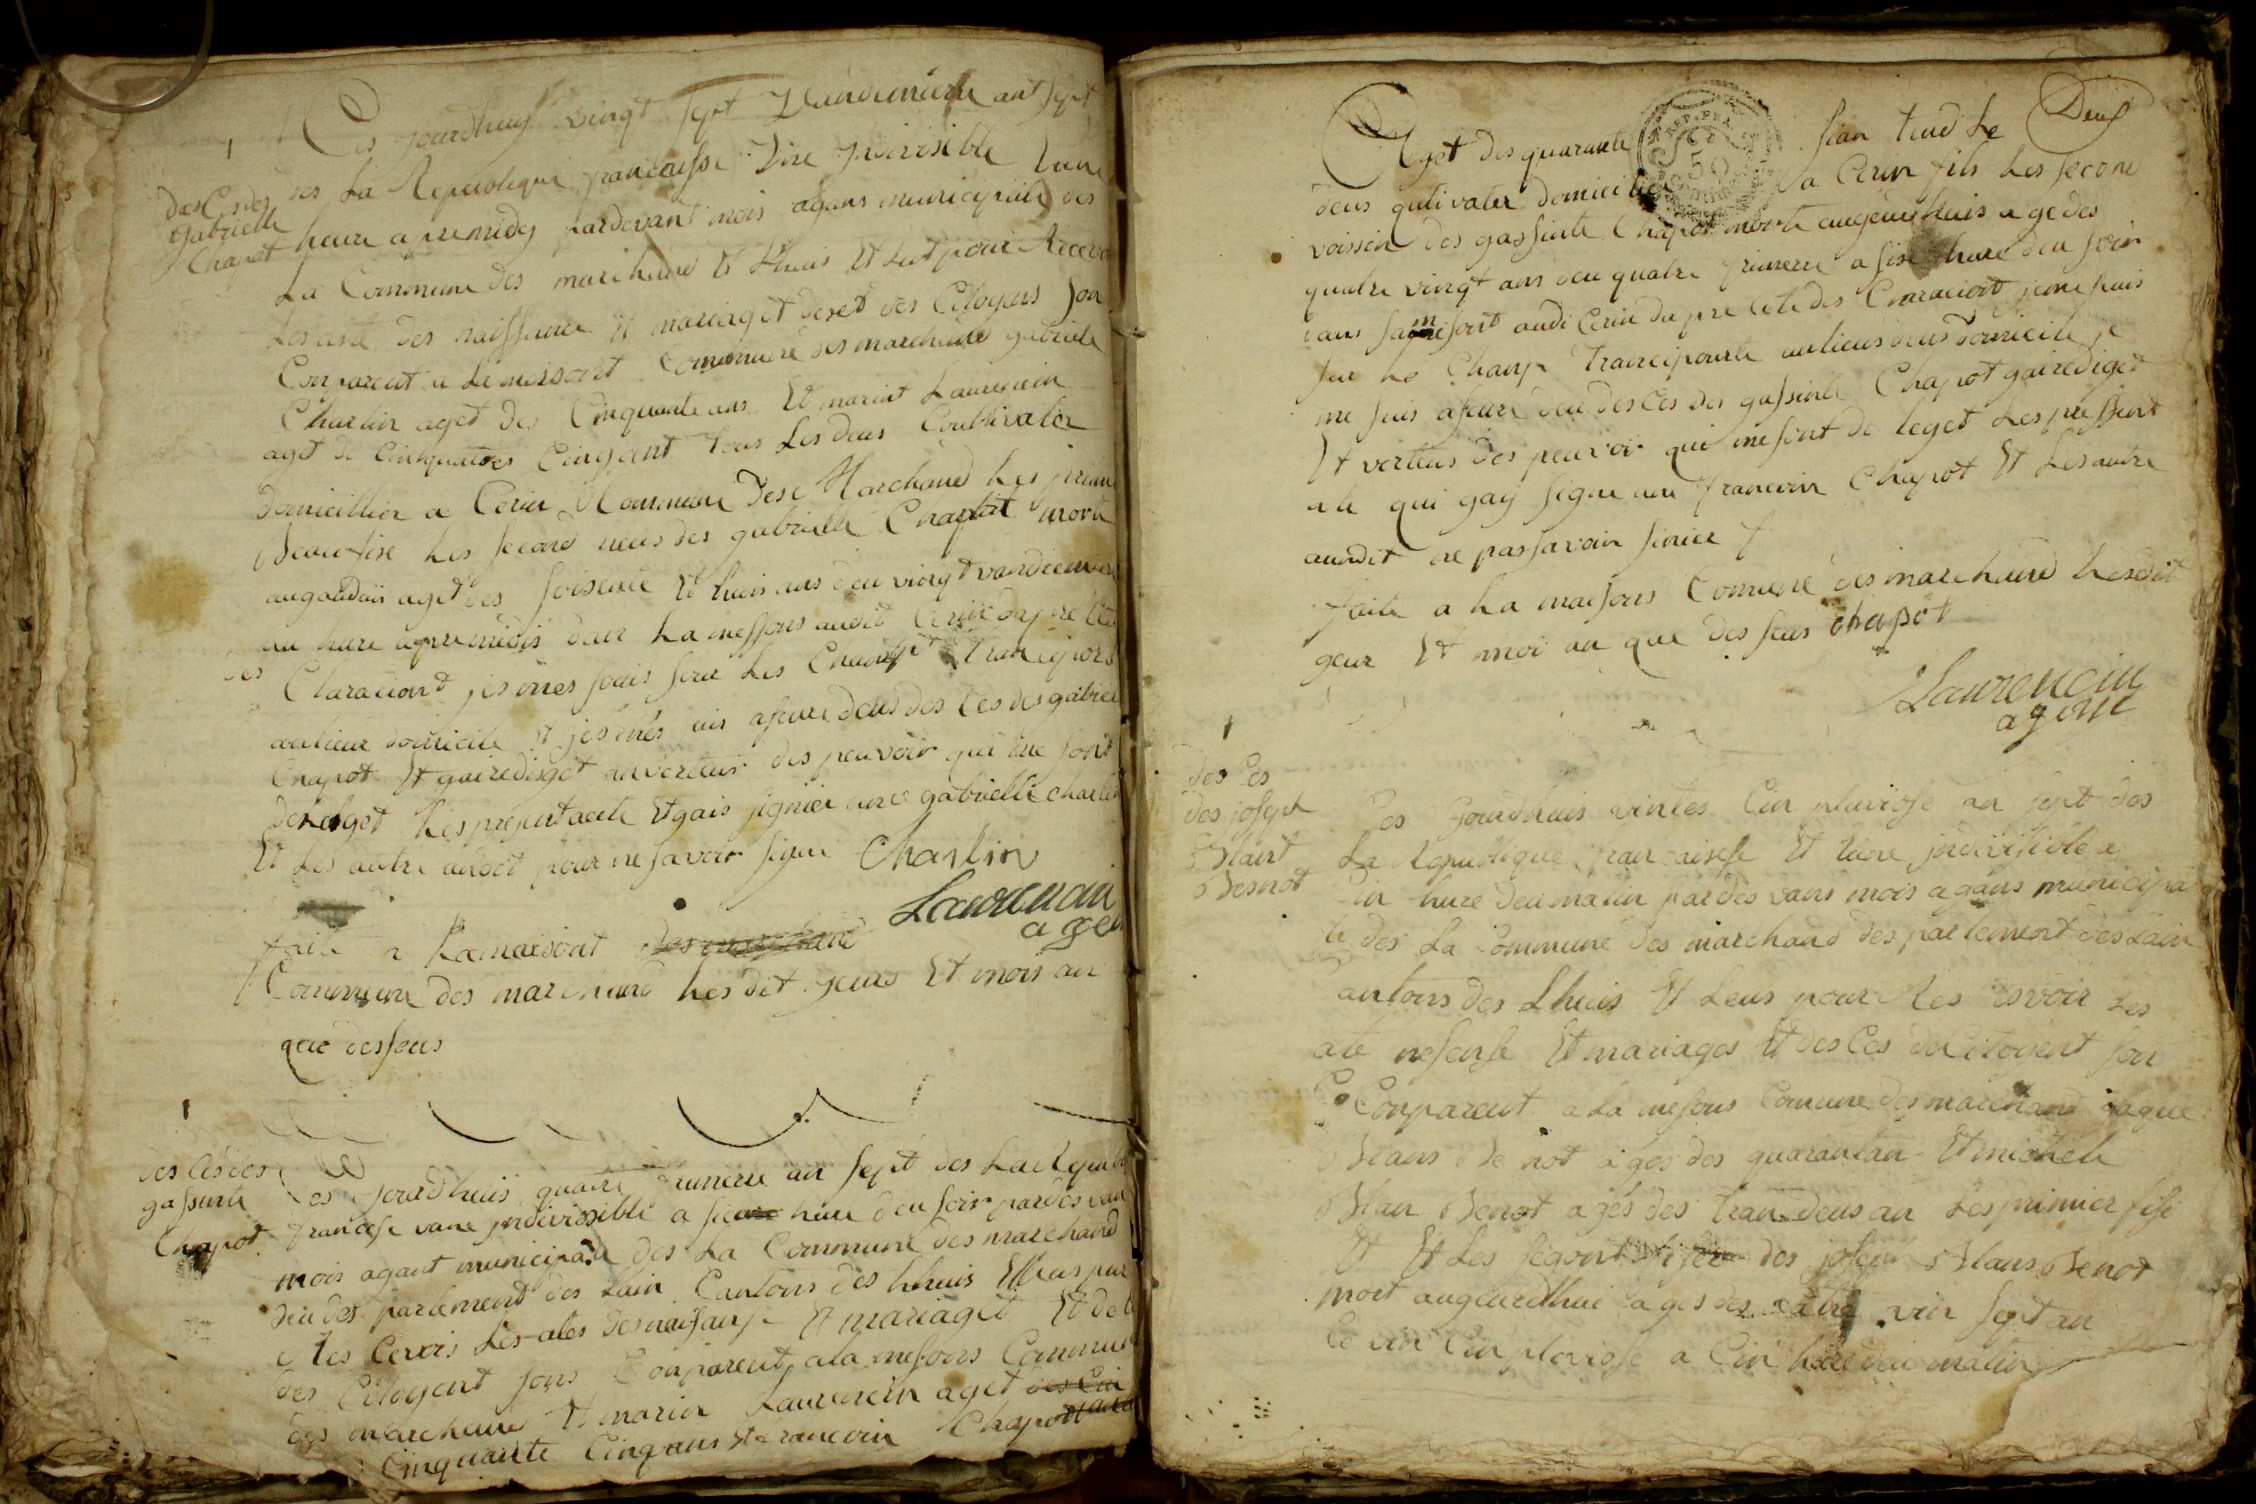 Ces jourdhuy vingt sept Vandemiere ant sept
desCes des
gabrielle
Chapot
des La Republique francaisse Une Indivisible Lune
heure apremidy pardevant mois agans municipale des
La Commune des marchand Et Lhuis Et Lut pour Recevoi
Les acte des naissance Et mariaget deset des Citoyens son
Comparent a La misont Commune des marchand gabriele
Charlin aget des Cinquante ans Et marint Laurencin
aget de Cinquates Cinq ent tous Les deus Coultivater
domicillier a Cerin Commune Dese Marchand Les primie
Les second neus des gabrielle Chapot morte
augourduis aget des soisente Et huis ans deu vingt vandemiere
au hure apremidis dans La messons audit Cerin dapre Les
des Claraciont jesmes suis sur Les Champt Trancsport
aulieu domicile Et jesmes uis asure deus des Ces des gabriel
Chapot Et gairedisget anverteus des peuvoir qui me sont
deLeget Les present acte Et gais signier avec gabrielle charlin
Et Les autre audit pour ne savoir signé Charlin
Laurencin
agen
faite a Lamaisont des marchand
Commune des marchand Les dit jeurs Et mois an
que dessus
des Ces des
gassinte
Chapot
Ces jourdhuis quatre frimerre an sept des La Republi
francesse vune indivissible a sis hure deu soir pardes van
mois agant municipale des La Commune des marchand
deu des partement des Lain Cantons des Lhuis Et Leus pur
Res Cevois Les-ates des naisanse Et mariaget Et de Ce
des Citoyent sons Conparent ala messons Commune
des marchand Et marin Laurencin aget des Cin
Cinquante Cinq ans Et francoin Chapot
Aget des quarante
jean tend Le Deus
deus qultivater domicilier a Cerin fils Les second
voissin des gassinte Chapot morte augeurdhuis agedes
quatre vingt ans deu quatre frimerre a sise hure deu soir
dans sa misont audi Cerin dapre Cete des Claraciont jemesuis
sur Le Champ Trancsporte aulieus deus domicile je
me suis asure deu des Ces des gassinte Chapot gairediget
Et verteus des peuvoir qui me sont de leget Les pressent
ate qui gay signe avec francoin Chapot Et Les autre
aundit ne pas savoir sinier
faite a La maisons Comune des marchand Lesdit
geur Et moi an que des sus chapot
Laurencin
agent
des Ces
des joseph
Blant
Benot
Ces jourdhuis vintes Cin pluviose an sept des
La Republique francaisse Et Lune indivisible a
Cin hure deu matin pardes vans mois agans municipa
le des La Commune des marchand des partement des Lain
Cantons des Lhuis Et Leus pour Res Cevoir Les
ate nesense Et mariages Et des Ces des Citoyent son
Conparent a La mesons Comune des marchand jaque
Blans Benot ages des quarantan Et michele
Blan Benot ages des trandeus an Les primier fise
Et Et Les segont des joseph Blans Benot
mort augeurdhui ages des catre vin sept an
Ce vin Cin plviose a Cin hure deu matin